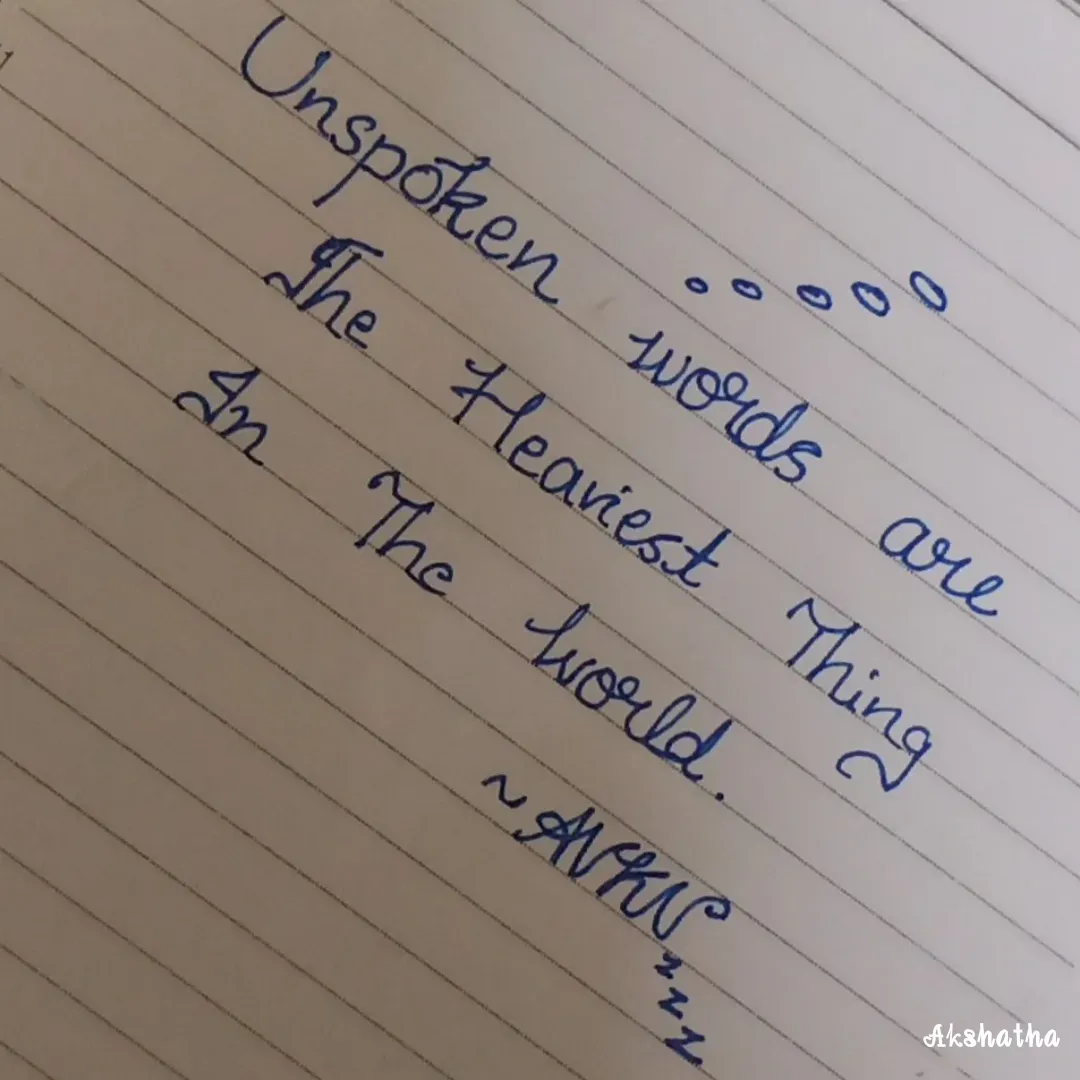 Unspoken words are
The Heaviest Thing
In The world.
~AVKV
zzz
Akshatha